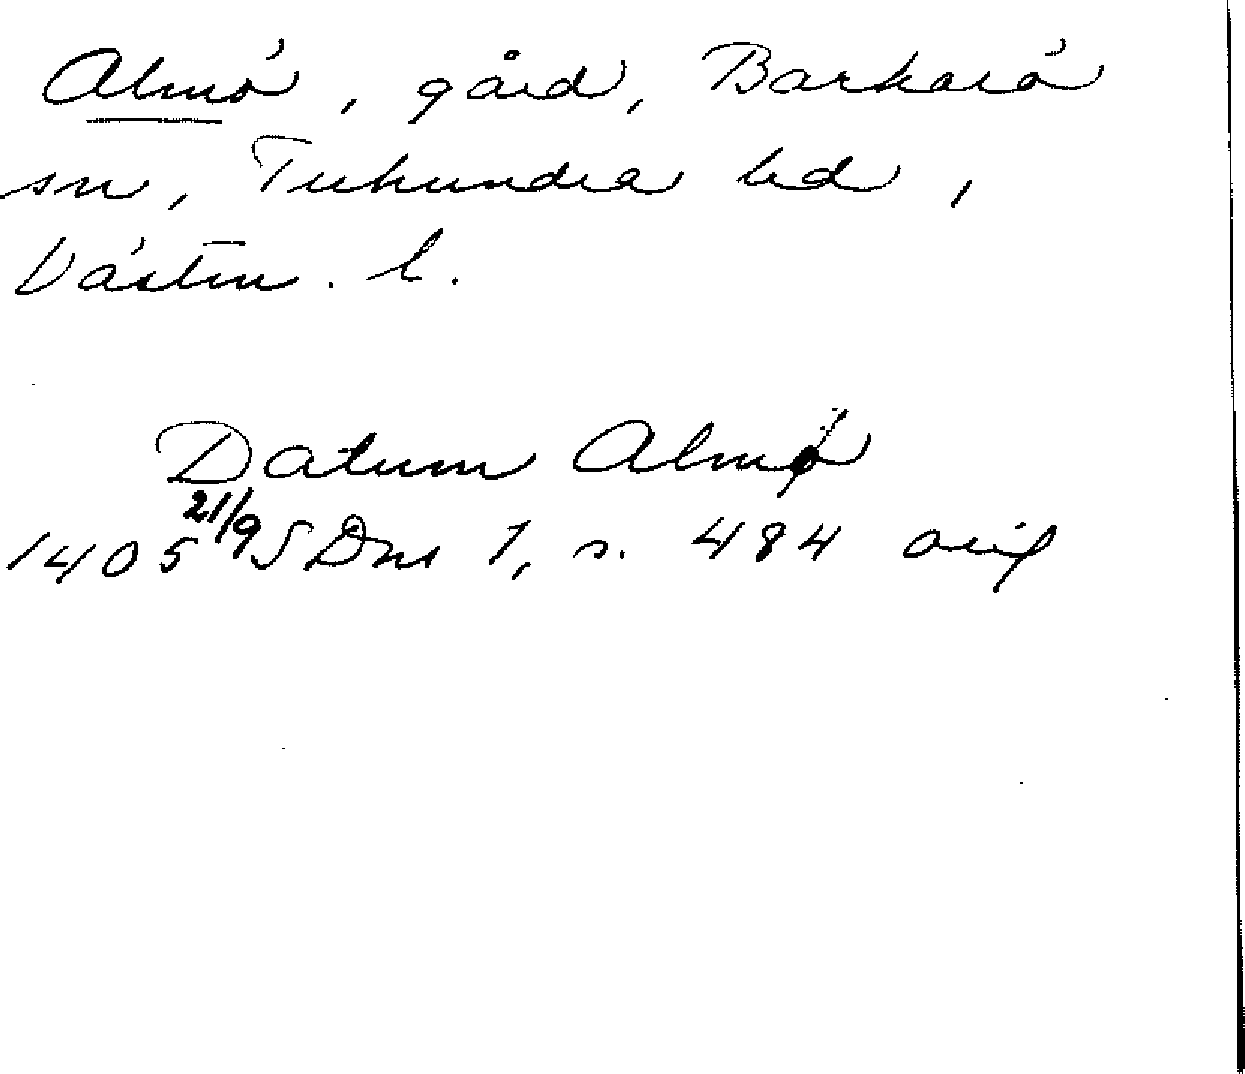 Almö, gård, Barkarö
sn, Tuhundra hd,
Västm. l.
Datum Almø
1405 21/9 SDns 1, s. 484 orig